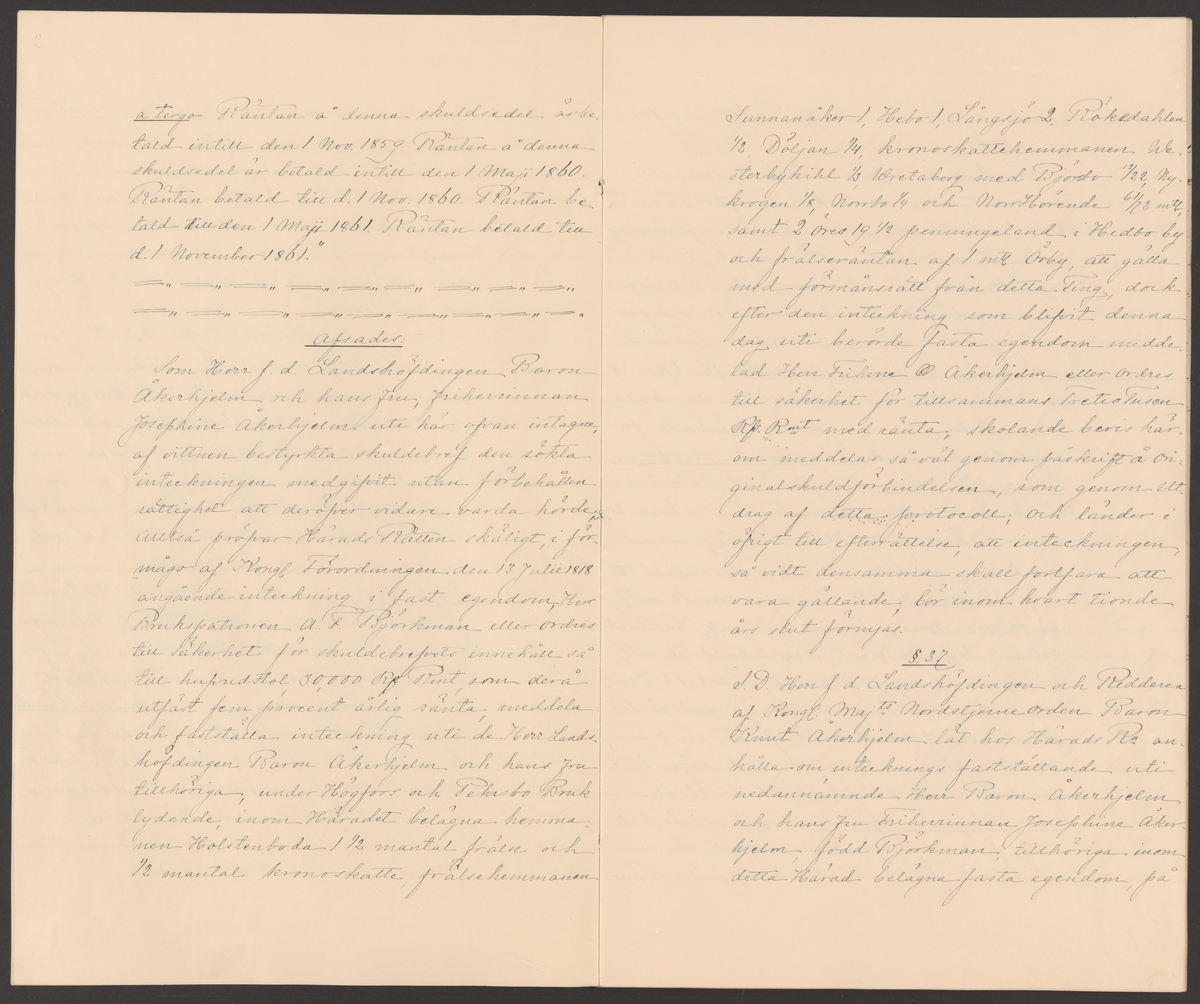 a tergo Räntan å denna skuldsedel är be-
tald intill den 1 Nov. 1859 Räntan å denna
skuldsedel är betald intill den 1 Maji 1860.
Räntan betald till d. 1 Nov. 1860. Räntan be-
tald till den 1 Maji 1861. Räntan betald till
d. 1 November 1861."
Afsades:
Som Herr f. d. Landshöfdingen Baron
Åkerhjelm och hans Fru, Friherrinnan
Josephine Åkerhjelm uti här ofvan intagne,
af vittnen bestyrkta skuldebref den sökta
inteckningen medgifvit utan förbehållen
rättighet att deröfver vidare varda hörde,
Alltså pröfvar Härads Rätten skäligt, i för-
mågo af Kongl. Förordningen den 13 Julii 1818
angående inteckning i fast egendom, Herr
Brukspatronen A. F. Björkman eller ordres
till säkerhet för skuldebrefvets innehåll så
till hufvudstol, 30,000 Rdr Rmt, som derå
utfäst fem procent årlig ränta, meddela
och fastställa inteckning uti de Herr Lands-
höfdingen Baron Åkerhjelm och hans Fru
tillhöriga, under Högfors och Pehrsbo Bruk
lydende, inom Häradet belägna hemma-
nen Holstenboda 1 1/2 mantal frälse och
1/2 mantal kronoskatte, frälsehemmanen
Sunnanåker 1, Hebo 1, Långsjö 2, Rökedahlen
1/2, Döljan 1/4, kronoskattehemmanen We-
sterbykihl 1/3 Wretaberg med Björsbo 13/22, Ny-
krogen 1/8, Norrbo 1/4 och Norrhörende 61/72 mtl,
samt 2 öres 19 1/2 penningeland i Hedbo by
och frälseräntan af 1 mtl Örby, att gälla
med förmånsrätt från detta Ting, dock
efter den inteckning som blifvit denna
dag uti berörde fasta egendom medde-
lad Herr Friherre O Åkerhjelm eller ordres
till säkerhet för tillsammans Tretio Tusen
Rdr Rmt med ränta; skolande bevis här-
om meddelas så väl genom påskrift å ori-
ginalskuldförbindelsen, som genom Ut-
drag af detta protocoll; och länder i
öfrigt till efterrättelse, att inteckningen,
så vidt densamma skall fortfara att
vara gällande, bör inom hvart tionde
års slut förnyas.
§. 37
S. D. Herr f. d. Landshöfdingen och Riddaren
af Kongl. Majts Nordstjerne Orden Baron
Knut Åkerhjelm lät hos Härads Rn an-
hålla om intecknings fastställande uti
nedannämnde Herr Baron Åkerhjelm
och hans Fru Friherrinnan Josephine Åker-
hjelm, född Björkman, tillhöriga inom
detta Härad belägna fasta egendom, på